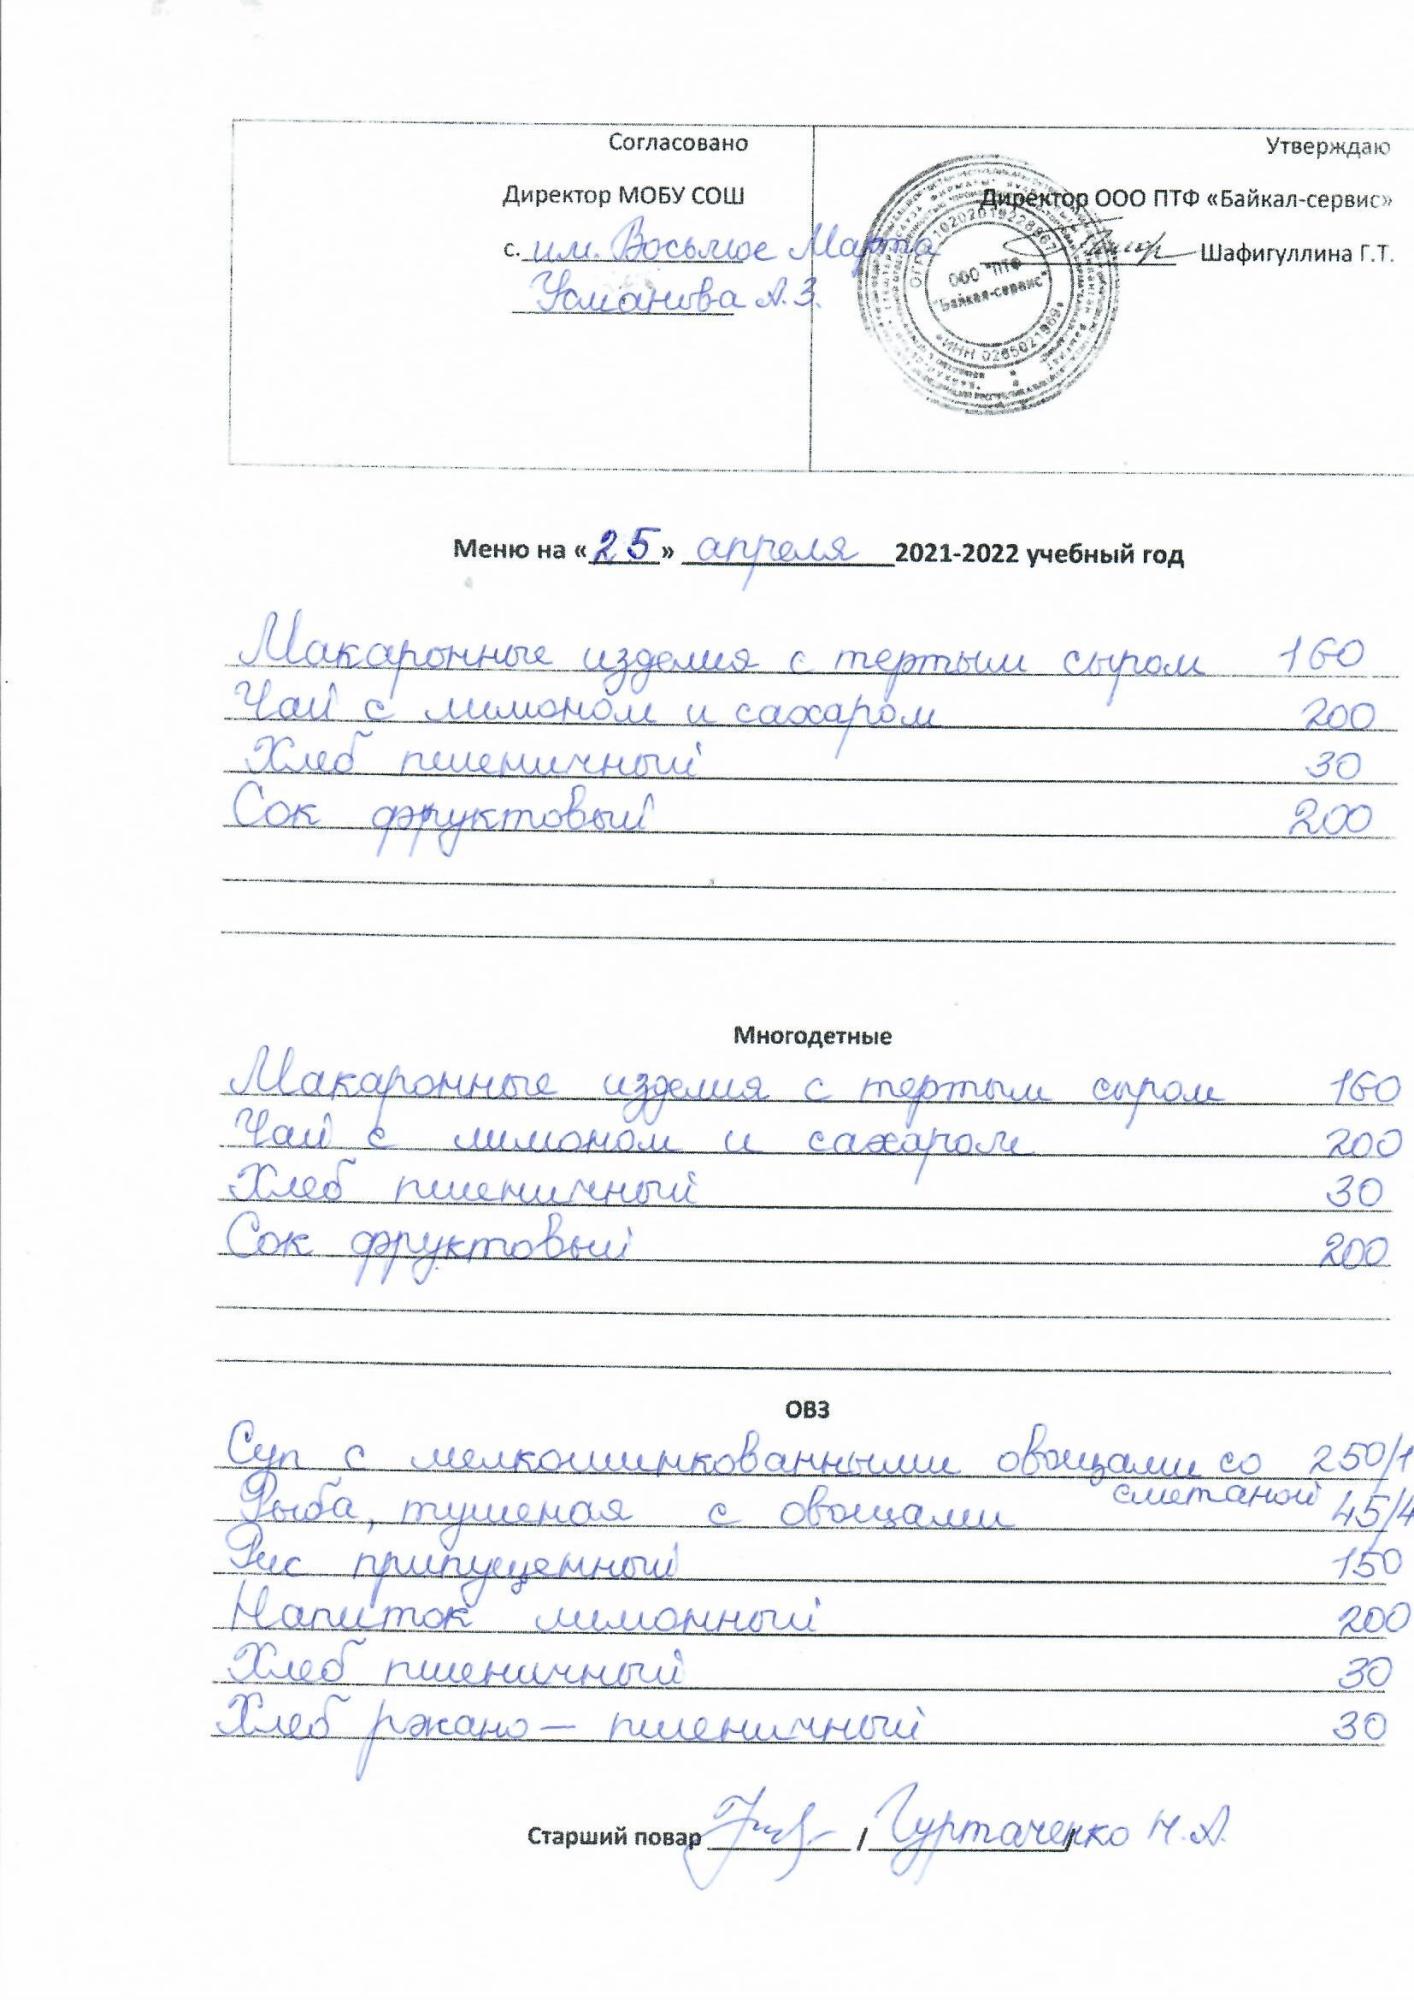 Согласовано
Директор МОБУ СОШ
с. им. Восьмое Марта
Усманова А.З.
Утверждаю
Директор ООО ПТФ «Байкал-сервис»
Шафигуллина Г.Т.
ООО "ПТФ
"Байкал-сервис"
Меню на « 25 » апреля 2021-2022 учебный год
Макаронные изделия с тертым сыром 160
Чай с лимоном и сахаром 200
Хлеб пшеничный 30
Сок фруктовый 200
Многодетные
Макаронные изделия с тертым сыром 160
Чай с лимоном и сахаром 200
Хлеб пшеничный 30
Сок фруктовый 200
ОВЗ
Суп с мелкошинкованными овощами со 250/1
сметаной
Рыба, тушеная с овощами 45/4
Рис припущенный 150
Напиток лимонный 200
Хлеб пшеничный 30
Хлеб ржано - пшеничный 30
Старший повар / Гуртаченко Н.А. /